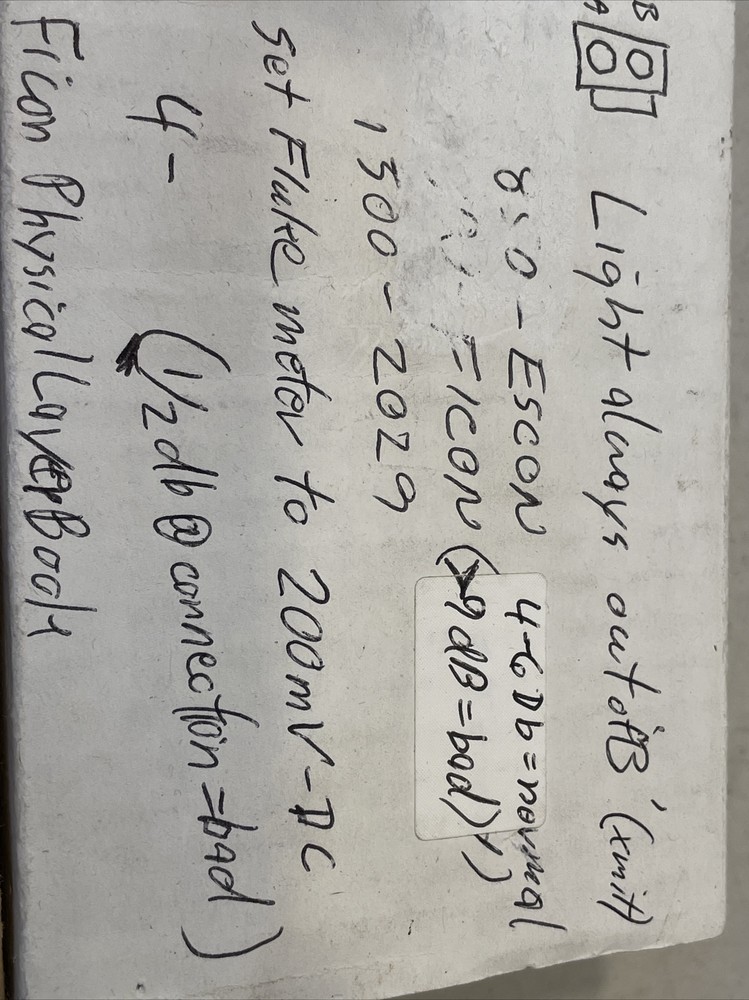 B
A
Light always out of 'B' (xmit)
4-6 Db = normal
- ESCON
FICON (>9 dB = bad)
1300 - 2029
Set Fluke meter to 200mV-DC
4 -
(1/2 db @ connection = bad)
Ficon Physical Layer Book